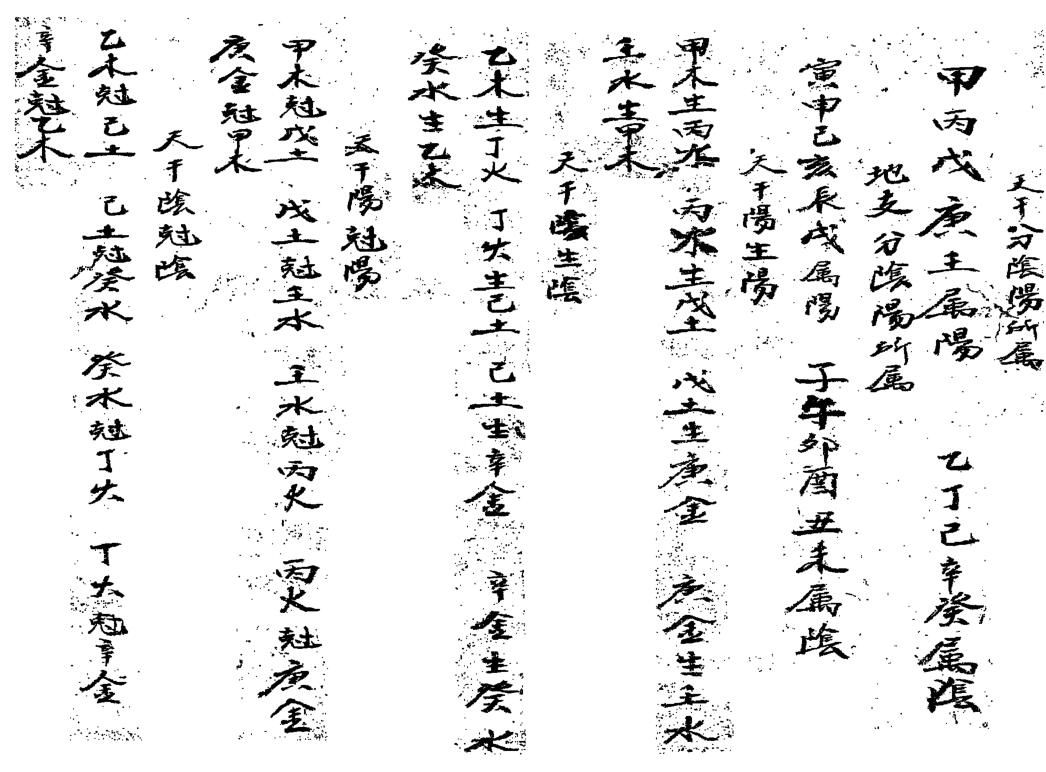 天干分陰陽所属
甲丙戊庚壬属陽　乙丁己辛癸属陰
地支分陰陽所属
寅申巳亥辰戌属陽　子午卯酉丑未属陰
天干陽生陽
甲木生丙火　丙火生戊土　戊土生庚金　庚金生壬水
壬水生甲木
天干陰生陰
乙木生丁火　丁火生己土　己土生辛金　辛金生癸水
癸水生乙木
天干陽尅陽
甲木尅戊土　戊土尅壬水　壬水尅丙火　丙火尅庚金
庚金尅甲木
天干陰尅陰
乙木尅己土　己土尅癸水　癸水尅丁火　丁火尅辛金
辛金尅乙木